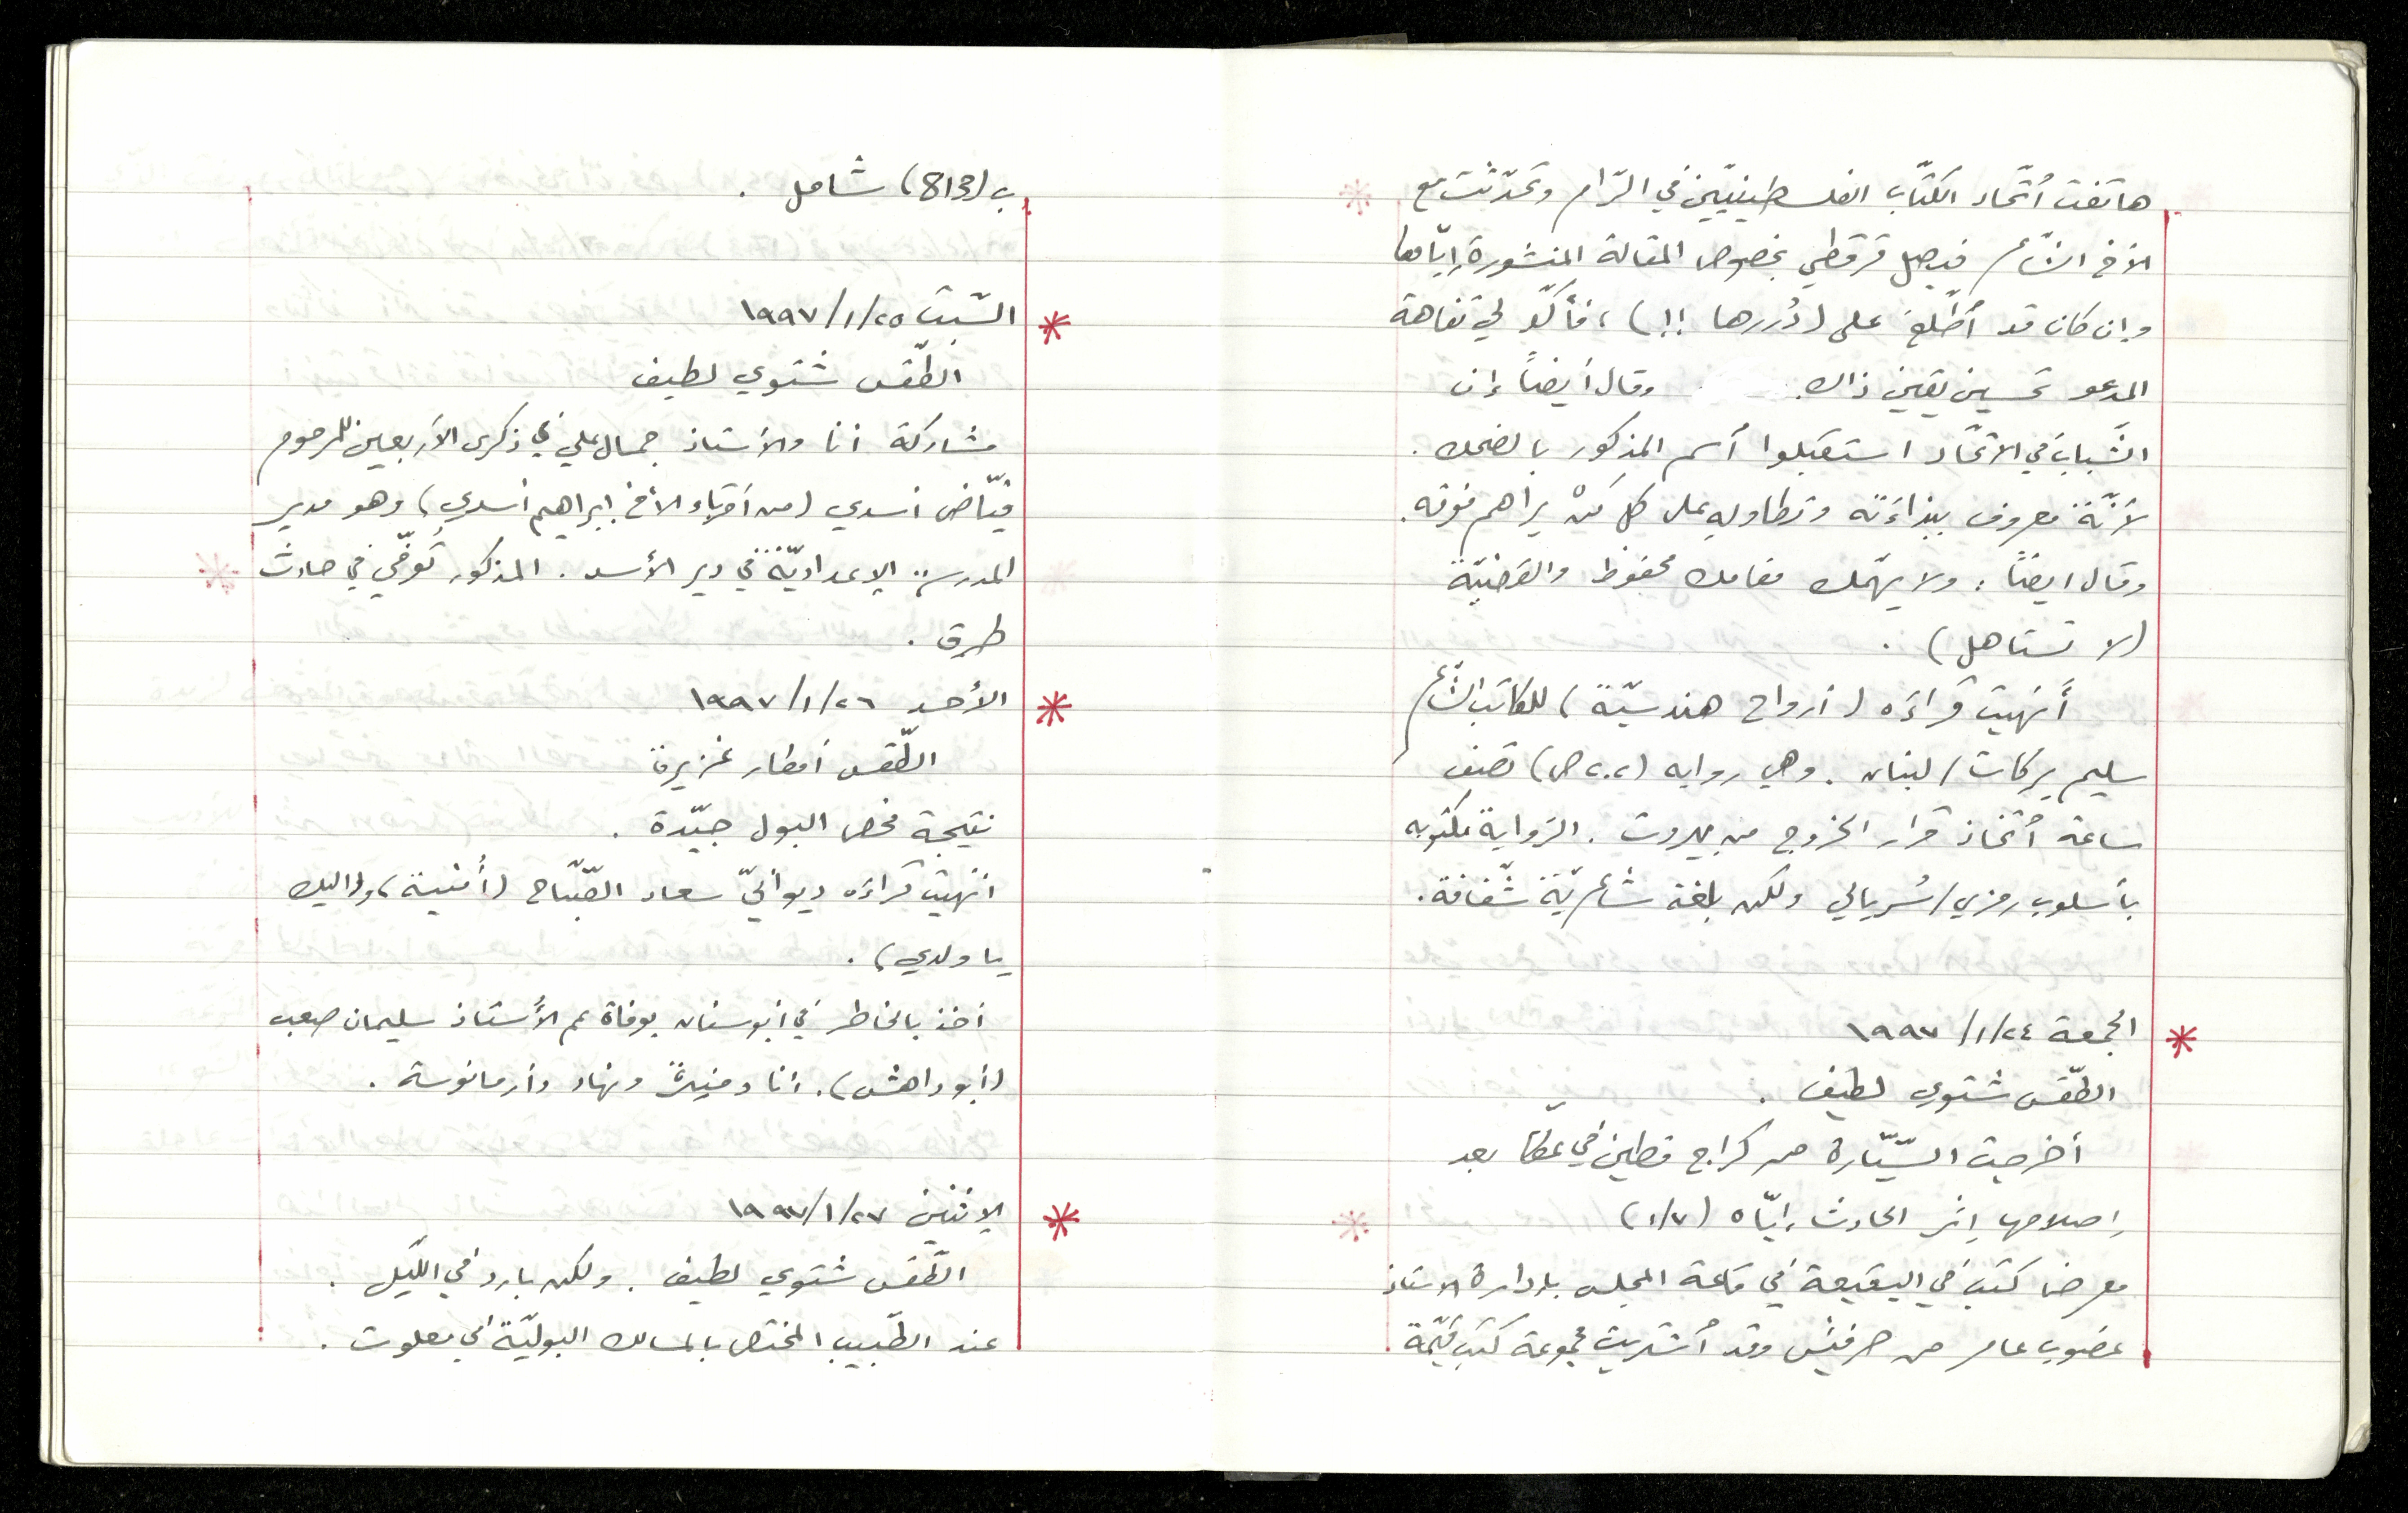 هاتفت اُتّحاد الكتّاب الفلسطينيّين في الرّام وتحدّثت مع
الأخ الشّاعر فيصل قرقطي بخصوص المقالة المنشورة إيّاها
وإن كان قد اُطّلع على (دُررها !!) ، فأكّد لي تفاهة
المدعو تحسين يقين ذاك. وقال أيضاً إن
الشّباب في الاتّحاد استقبلوا اُسم المذكور بالضحك.
لأنّه معروف ببذاءَته وتطاوله على كل مَنْ يراهم فوقه.
وقال ايضاً : ولا يهمّك مقامك محفوظ والقضيّة
(لا تستاهل) .
أَنهيت قراءَه (أرواح هندسيّة) للكاتب الشّاعر
سليم بركات / لبنان . وهي روايه (٢٠٢ ص) تصف
ساعة اُتّخاذ قرار الخروج من بيروت . الرّواية مكتوبه
بأسلوب رمزي / سُريالي ولكن بلغة شاعريّة شفّافة .
* الجمعة ٢٤/١/١٩٩٧
الطّقس شتوي لطيف .
أخرجت السّيّارة من كراج قطين في عكا بعد
إصلاحها إثر الحادث إيّاه (١/٧)
معرض كتب في البقيعة في قاعة المجلس بإدارة الاستاذ
غضوب عامر من حرفيش وقد اُشتريت مجموعة كتب قيّمة
ب (813) شامل .
* السّبت ٢٥/١/١٩٩٧
الطّقس شتوي لطيف
مشاركة أنا والأستاذ جمال علي في ذكرى الأربعين للمرحوم
فيّاض أسدي (من أقرباء الأخ ابراهيم أسدي) وهو مدير
المدرسة الإعداديّة في دير الأسد . المذكور تُوفّي في حادث
طرق .
* الأحد ٢٦/١/١٩٩٧
الطّقس أمطار غزيرة
نتيجة فحص البول جيّدة .
انهيت قراءَه ديوانيّ سعاد الصّبّاح (أُمنية) و(إليك
يا ولدي) .
أخذ بالخاطر في أبوسنان بوفاة عم الأُستاذ سليمان صعب
(أبو داهش) . أنا ومنيرة ونهاد وأرمانوسة .
* الإثنين ٢٧/١/١٩٩٧
الطّقس شتوي لطيف . ولكن بارد في الليل .
عند الطّبيب المختص بالمسالك البوليّة في معلوت .